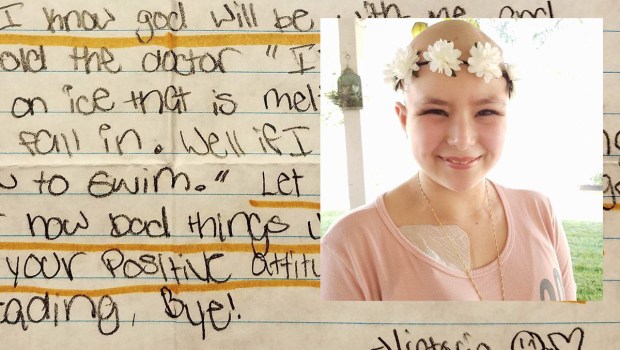 I know god will be with me and
old the doctor "I'
on ice that is mel
fall in. Well if I
to swim." Let
how bad things
your Positive attitu
ading, Bye!